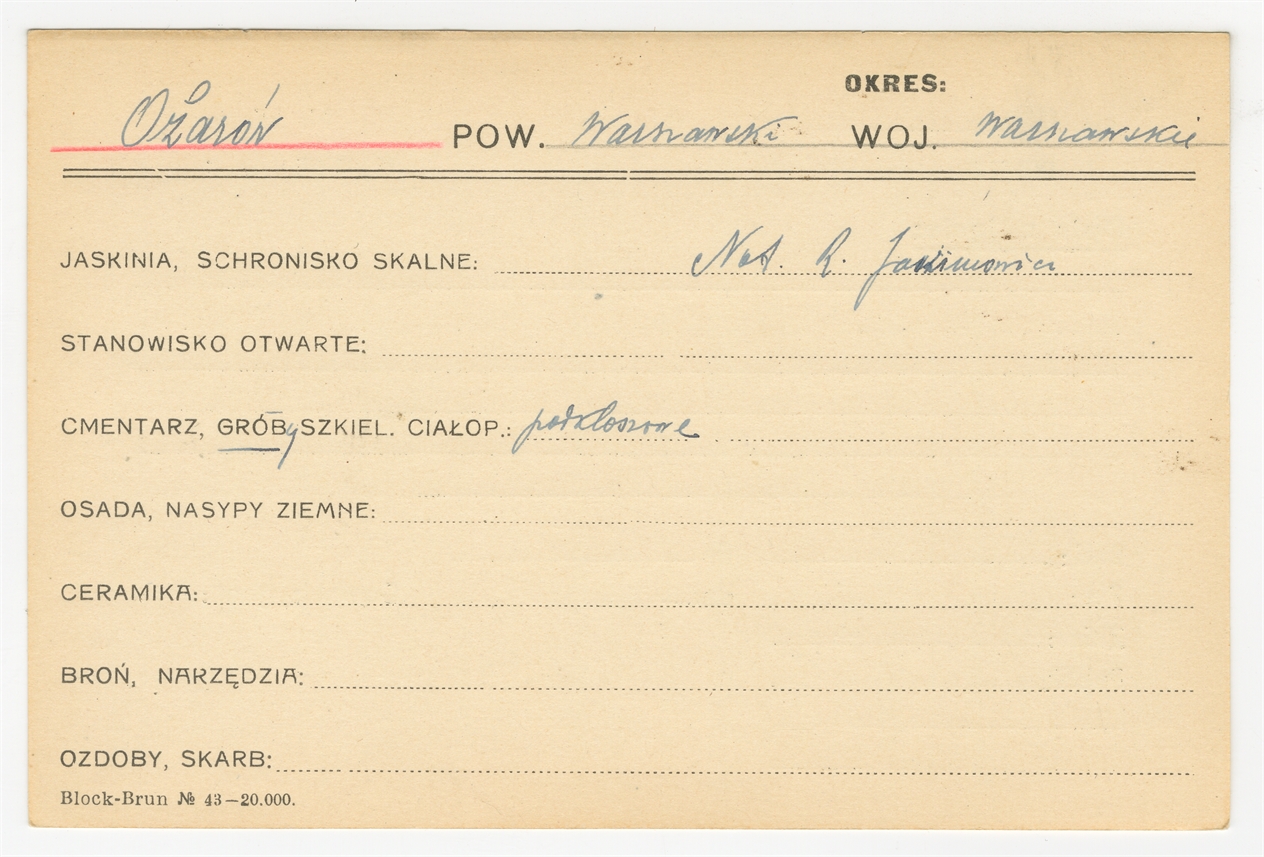 OKRES:
Ożarów POW. Warszawski WOJ. Warszawskie
JASKINIA, SCHRONISKO SKALNE: Not. R. Jakimowicz
STANOWISKO OTWARTE:
CMENTARZ, GRÓBy SZKIEL. CIAŁOP.: podkloszowe
OSADA, NASYPY ZIEMNE:
CERAMIKA:
BROŃ, NARZĘDZIA:
OZDOBY, SKARB:
Block-Brun № 43—20.000.